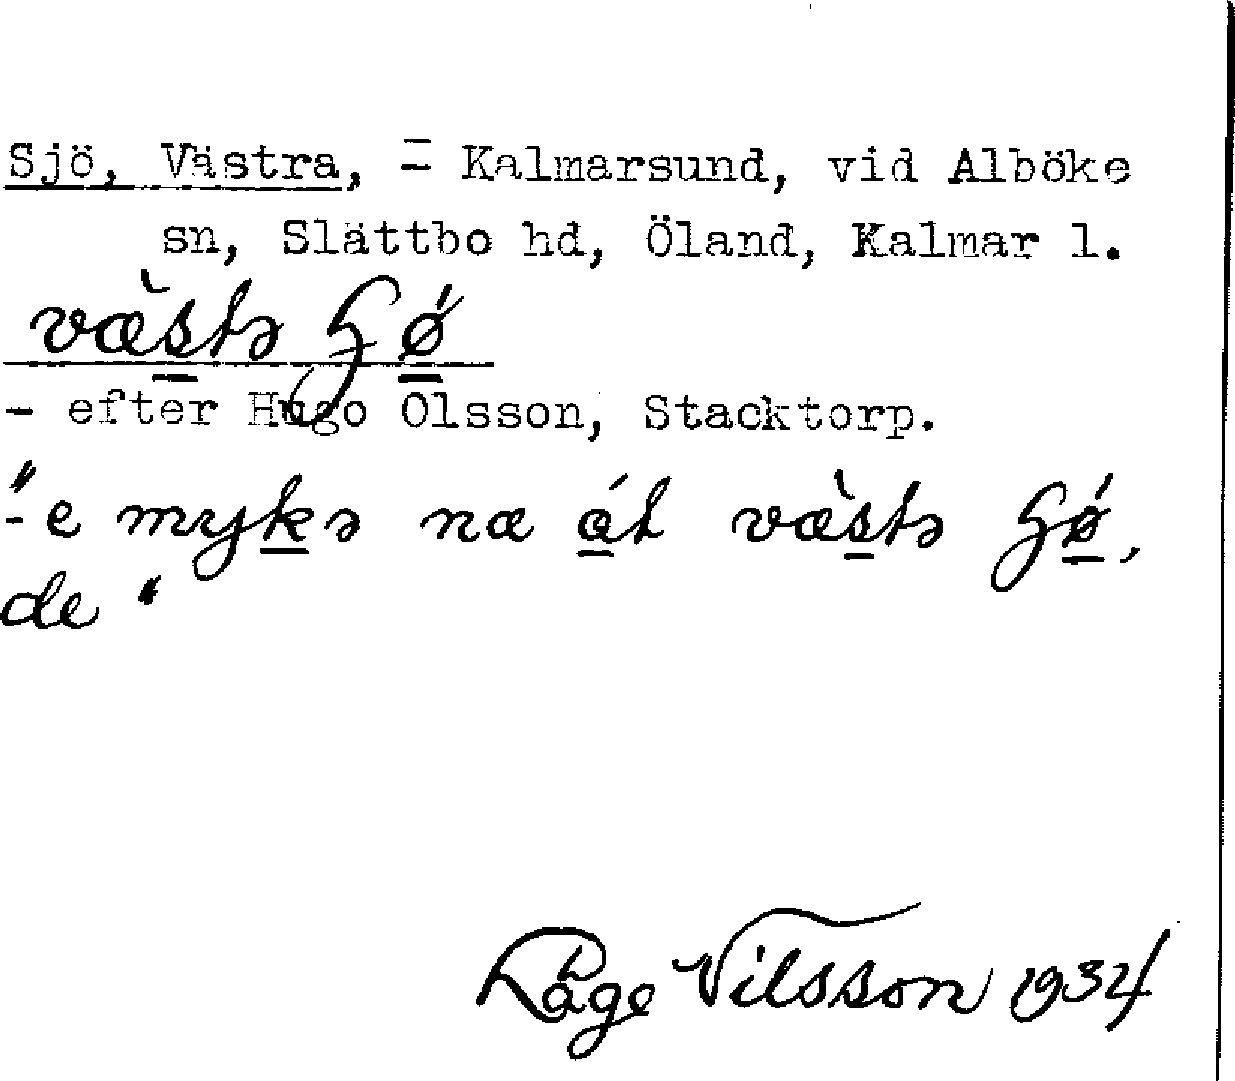 Sjö, Västra, = Kalmarsund, vid Alböke
sn, Slättbo hd, Öland, Kalmar l.
væ̀stə ʃǿ
- efter Hugo Olsson, Stacktorp.
"- e mykə næ ál væ̀stə ʃǿ,
de"
Råge Nilsson 1934